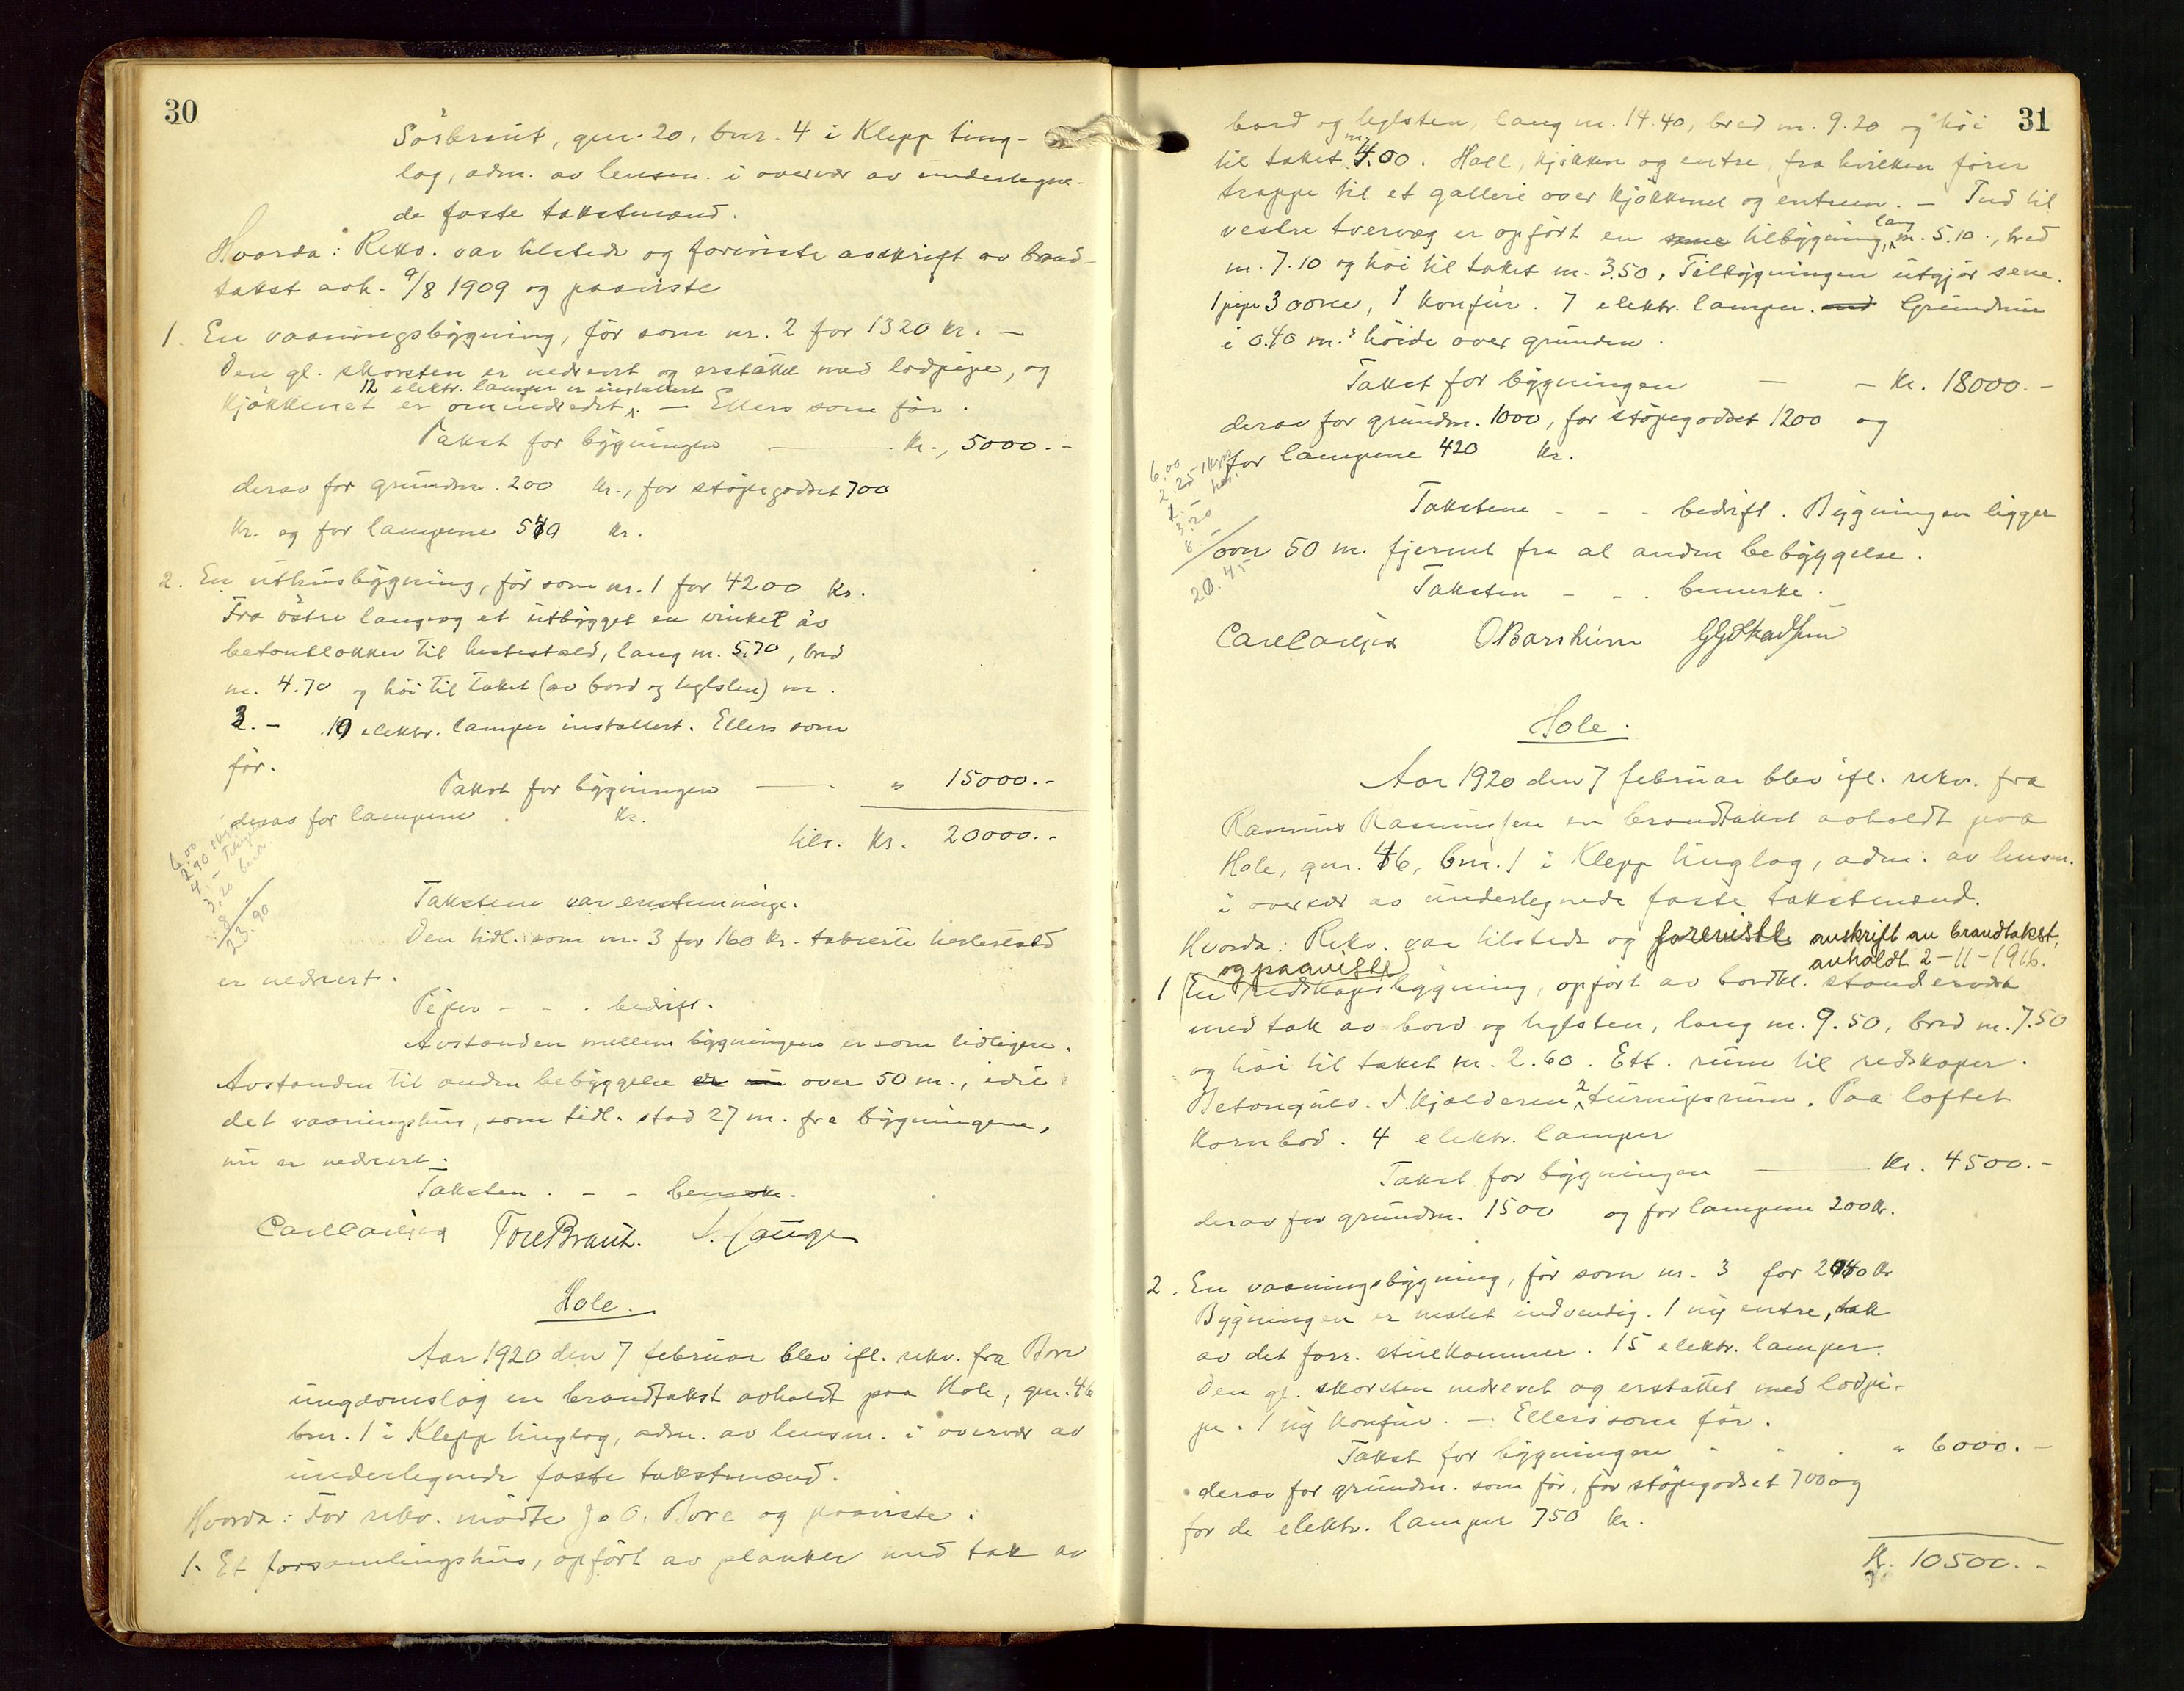 30
Sörbraut, gnr. 20, bnr. 4 i Klepp ting-
lag, adm. av lensm. i overvær av underlegne-
de faste takstmænd.
Hvorda: Rekv. var tilstede og foreviste avskrift av brand-
takst avh. 9/8 1909 og paaviste
1. En vaaningsbygning, før som nr. 2 for 1320 kr. —
Den gl. skorsten er nedrevet og erstattet med lodpipe, og
12 elektr. lamper er installert
kjøkkenet er omindredet. — Ellers som før.
Takst for bygningen — kr. 5000.-
derav for grundm. 200 kr., for støpegodset 700
kr. og for lampene 540 kr.
2. En uthusbygning, før som nr. 1 for 4200 kr.
Fra østre langvæg et utbygget en vinkel av
betonblokker til hestestald, lang m. 5.70, bred
m. 4.70 og høi til taket (av bord og teglsten) m.
3. - 10 elektr. lamper installert. Ellers som
før.
Takst for bygningen — " 15000.-
derav for lampene . kr.
tils. kr. 20000.-
6.00
2.90
4.-
3.20
8.-
23.90
Takstene var enstemmige.
Den tidl. som nr. 3 for 160 kr. takserte hestestald
er nedrevet.
Peiser - - . bedrift.
Avstanden mellem bygningene er som tidligere.
Avstanden til anden bebyggelse er nu over 50 m., idet
det vaaningshus, som tidl. stod 27 m. fra bygningene,
nu er nedrevet.
Taksten . - - bemerke.
Carl Carlsen Tore Braut. S. Hauge
Hole.
Aar 1920 den 7 februar blev ifl. rekv. fra Bore
ungdomslag en brandtakst avholdt paa Hole, gnr. 46
bnr. 1 i Klepp tinglag, adm. av lensm. i overvær av
underlegnede faste takstmænd.
Hvorda: For rekv. mødte J. O. Bore og paaviste:
1. Et forsamlingshus, opført av planker med tak av
31
bord og teglsten, lang m. 14.40, bred m. 9.20 og høi
til taket m. 4.00. Hall, kjøkken og entre, fra hvilken fører
trappe til et galleri over kjøkkenet og entreen. — Ind til
vestre tvervæg er opført en scene tilbygning, lang m. 5.10, bred
m. 7.10 og høi til taket m. 3.50, Tilbygningen utgjør scene.
1 pipe 3 ovne, 1 konfur. 7 elektr. lamper. med Grundmur
i 0.40 m.s høide over grunden.
Takst for bygningen — - Kr. 18000.-
derav for grundm. 1000, for støpegodset 1200 og
for lampene 420 kr.
6.00
2.25
1.-
3.20
8.-
20.45
Takstene - - - bedrift. Bygningen ligger
over 50 m. fjernet fra al anden bebyggelse.
Taksten - - . bemerke.
Carl Carlsen O Barsheim
Hole.
Aar 1920 den 7 februar blev ifl. rekv. fra
Rasmus Rasmussen en brandtakst avholdt paa
Hole, gnr. 46, bnr. 1 i Klepp tinglag, adm. av lensm.
i overvær av underlegnede faste takstmænd.
Hvorda: Rekv. var tilstede og foreviste avskrift av brandtakst,
avholdt 2-11-1916.
og paaviste
1 En redskapsbygning, opført av bordkl. standerverk
med tak av bord og teglsten, lang m. 9.50, bred m. 7.50
og høi til taket m. 2.60. Ett. rum til redskaper.
Betongulv. I kjælderen 2 turnipsrum. Paa loftet
kornbod. 4 elektr. lamper
Takst for bygningen — kr. 4500.-
derav for grundm. 1500 og for lampene 200 kr.
2. En vaaningsbygning, før som nr. 3 for 2040 kr
Bygningen er malet indvendig. 1 ny entre, tak
av det forr. stuekammer. 15 elektr. lamper.
Den gl. skorsten nedrevet og erstattet med lodpi-
pe. 1 ny konfur. — Ellers som før.
Takst for bygningen - - . " 6000.-
derav for grundm. som før, for støpegodset 700 og
for de elektr. lamper 750 kr.
Kr. 10500.-